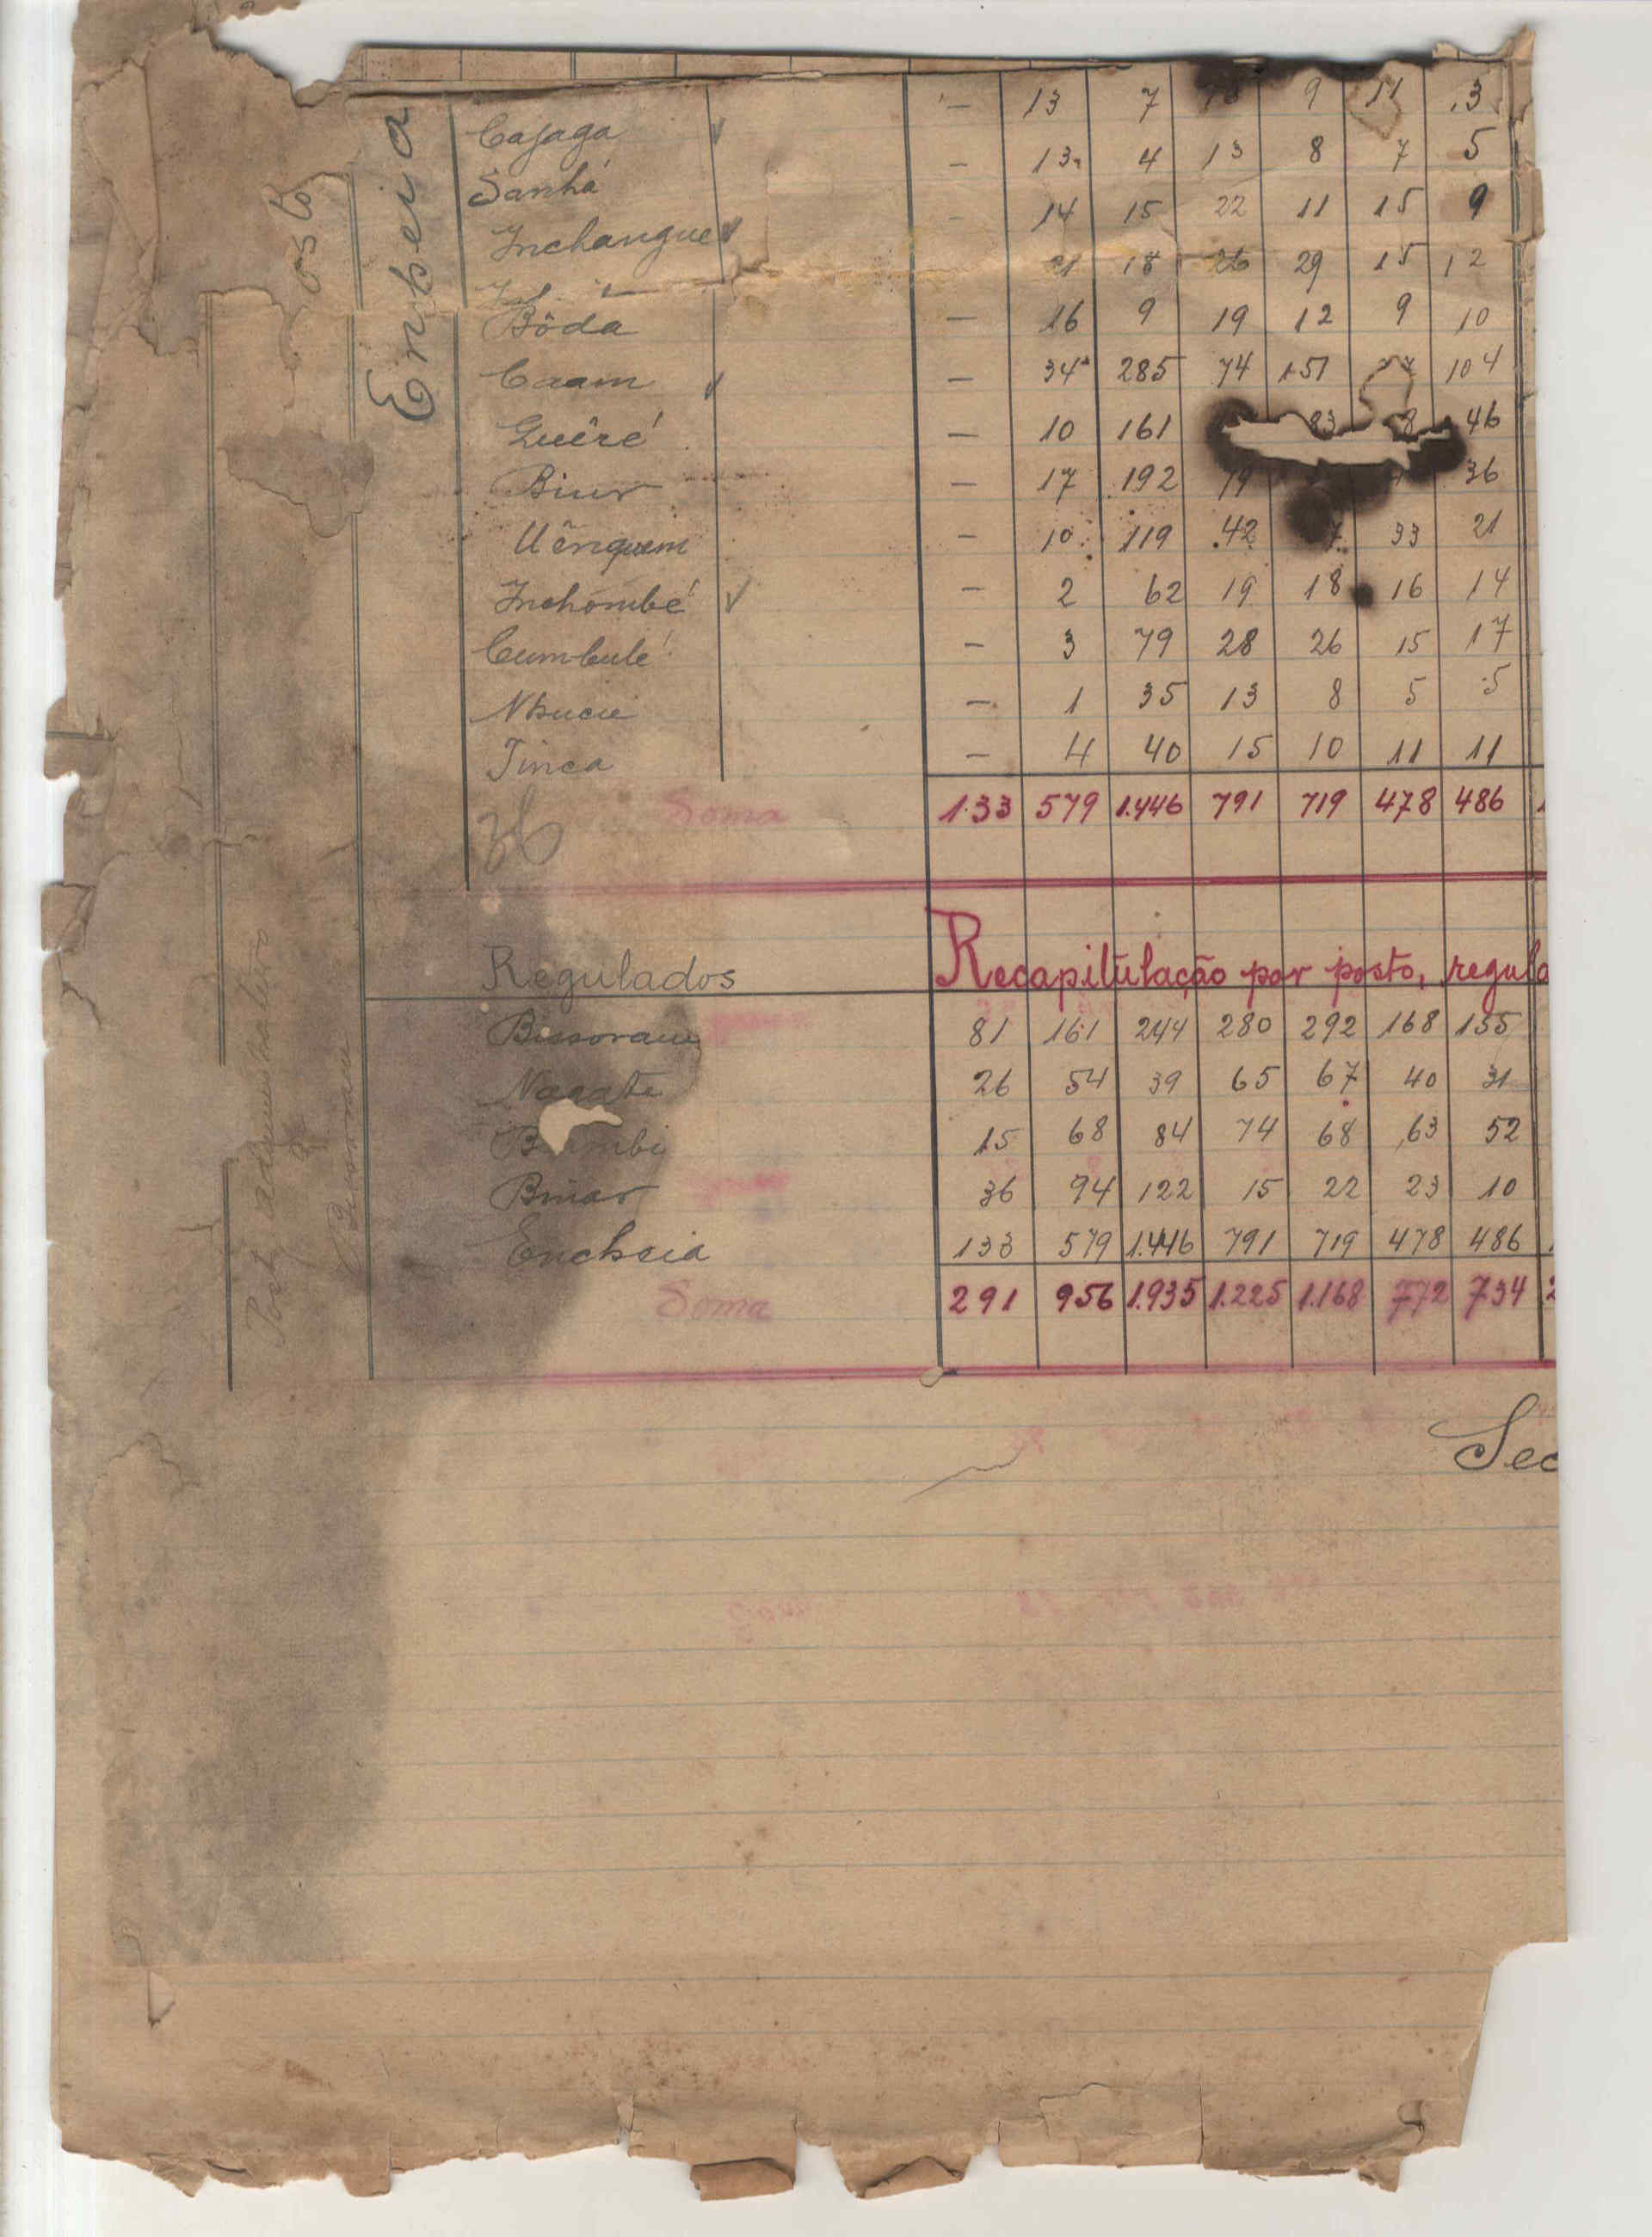 Enxeia
Cajaga — 13 7 9 11 3
Sanhá — 13 4 13 8 7 5
Inchangue 14 15 22 11 15 9
21 18 26 29 15 12
Bôda — 16 9 19 12 9 10
Caam — 34 285 74 151 104
Guêré — 10 161 83 8 46
Biur — 17 192 79 36
Uênquem — 10 119 42 7 33 21
Inchombé — 2 62 19 18 16 14
Cumbulé — 3 79 28 26 15 17
— 1 35 13 8 5 5
Tinca — 4 40 15 10 11 11
Soma 133 579 1.446 791 719 478 486
Regulados Recapitulação por posto, regula
Bissoram 81 161 244 280 292 168 155
Nagate 26 54 39 65 67 40 31
B mbi 15 68 84 74 68 63 52
Binar 36 94 122 15 22 23 10
Encheia 133 579 1.446 791 719 478 486
Soma 291 956 1.935 1.225 1.168 772 734 2
Posto administrativo
de
Bissoram
Sec